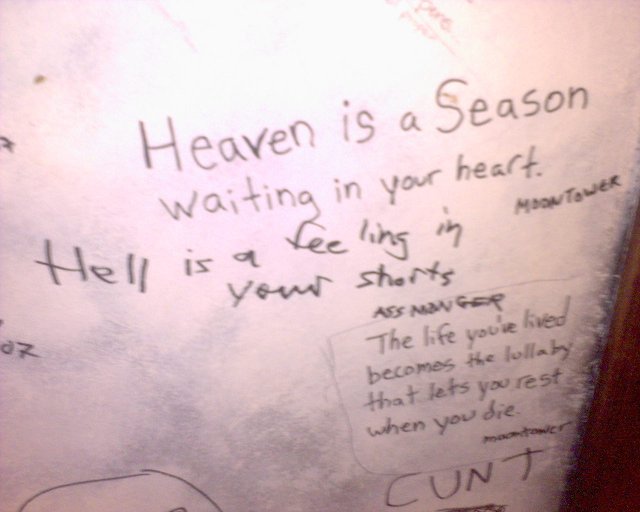 Heaven is a Season
waiting in your heart.
MOONTOWER
Hell is a feeling in
your shorts
ASS MONGER
The life you've lived
becomes the lullaby
that lets you rest
when you die.
moontower
CUNT
07